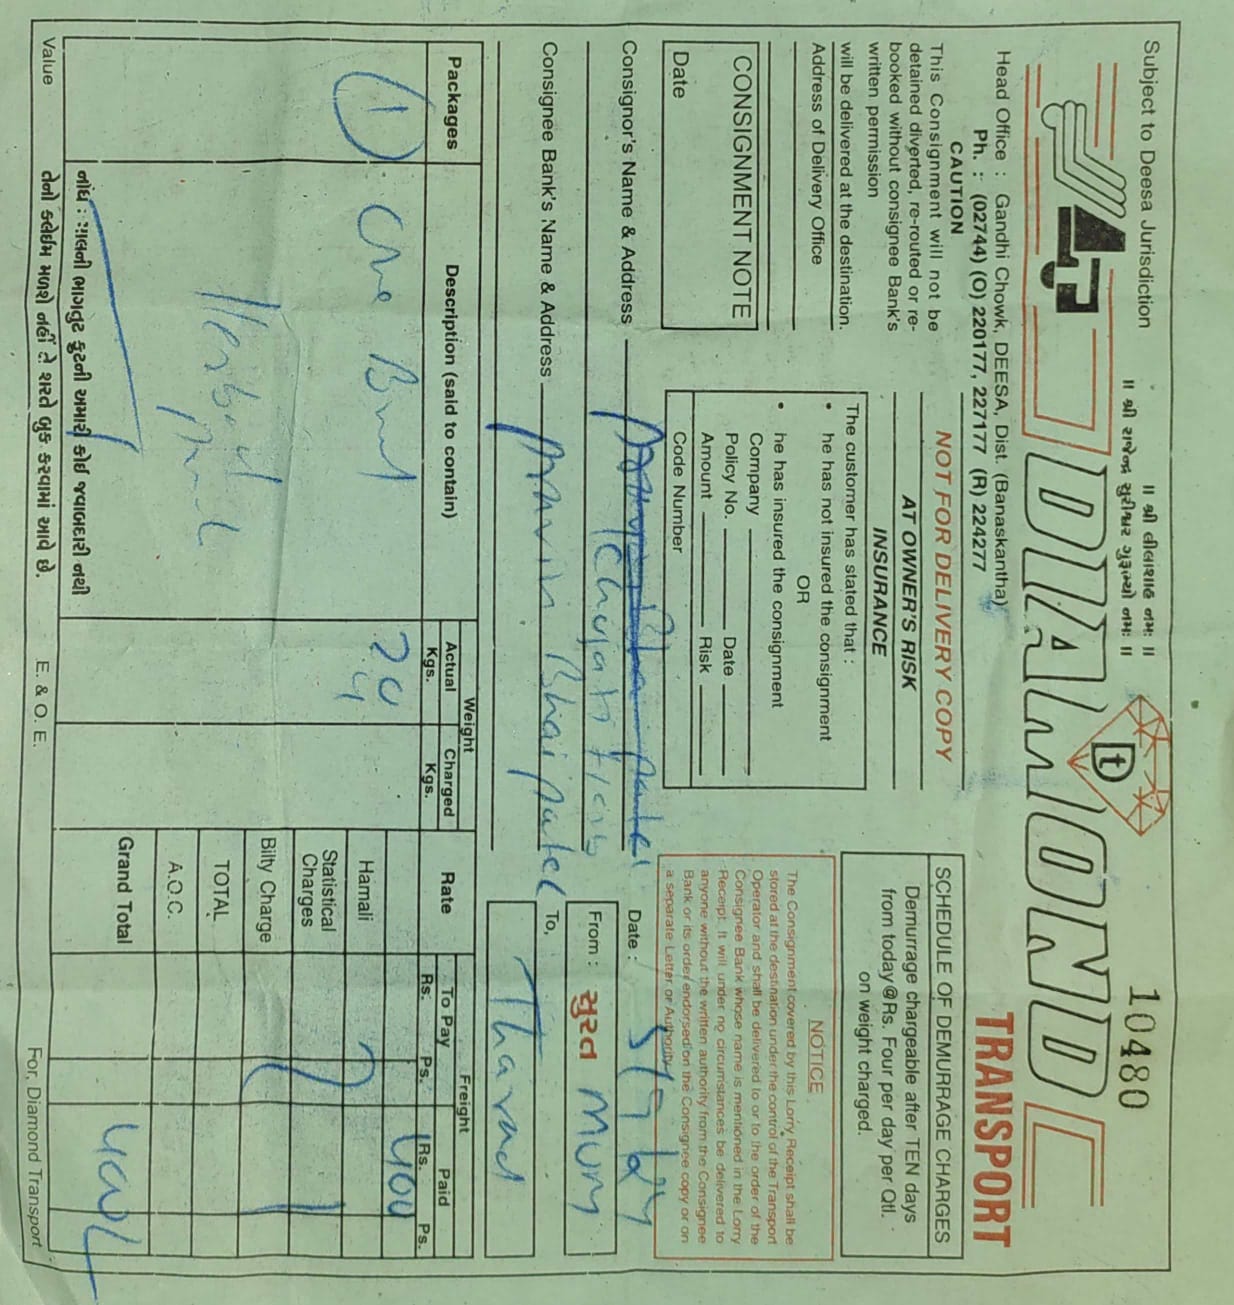 ॥ શ્રી લીલાશાહ નમઃ ॥
Subject to Deesa Jurisdiction
॥ શ્રી રાજેન્દ્ર સુરીશ્વર ગુરૂભ્યો નમઃ ॥
10480
DIAMOND
TRANSPORT
Head Office : Gandhi Chowk, DEESA, Dist. (Banaskantha)
Ph. : (02744) (O) 220177, 227177 (R) 224277
CAUTION
This Consignment will not be
detained diverted, re-routed or re-
booked without consignee Bank's
written permission
will be delivered at the destination.
Address of Delivery Office
CONSIGNMENT NOTE
Date
NOT FOR DELIVERY COPY
AT OWNER'S RISK
INSURANCE
The customer has stated that :
• he has not insured the consignment
OR
• he has insured the consignment
Company
Policy No. Date
Amount Risk
Code Number
SCHEDULE OF DEMURRAGE CHARGES
Demurrage chargeable after TEN days
from today@Rs. Four per day per Qtl.
on weight charged.
NOTICE
The Consignment covered by this Lorry Receipt shall be
stored at the destination under the control of the Transport
Operator and shall be delivered to or to the order of the
Consignee Bank whose name is mentioned in the Lorry
Receipt. It will under no circumstances be delivered to
anyone without the written authority from the Consignee
Bank or its order endorsed on the Consignee copy or on
a separate Letter or Authority
Consignor's Name & Address
Date :
From : સુરત
Consignee Bank's Name & Address Arvin Bhai Patel
To, Tharad
Packages Description (said to contain) Weight Rate Freight
Actual Kgs. Charged Kgs. To Pay Paid
Rs. Ps. Rs. Ps.
1 One 400
Herbal
Hamali
Statistical Charges
Bilty Charge
TOTAL
A.O.C.
Grand Total
નોંધ : માલની ભાગતુટ ફુટની અમારી કોઇ જવાબદારી નથી
Value તેનો કલેઇમ મળશે નહીં તે શરતે બુક કરવામાં આવે છે. E. & O. E. For, Diamond Transport